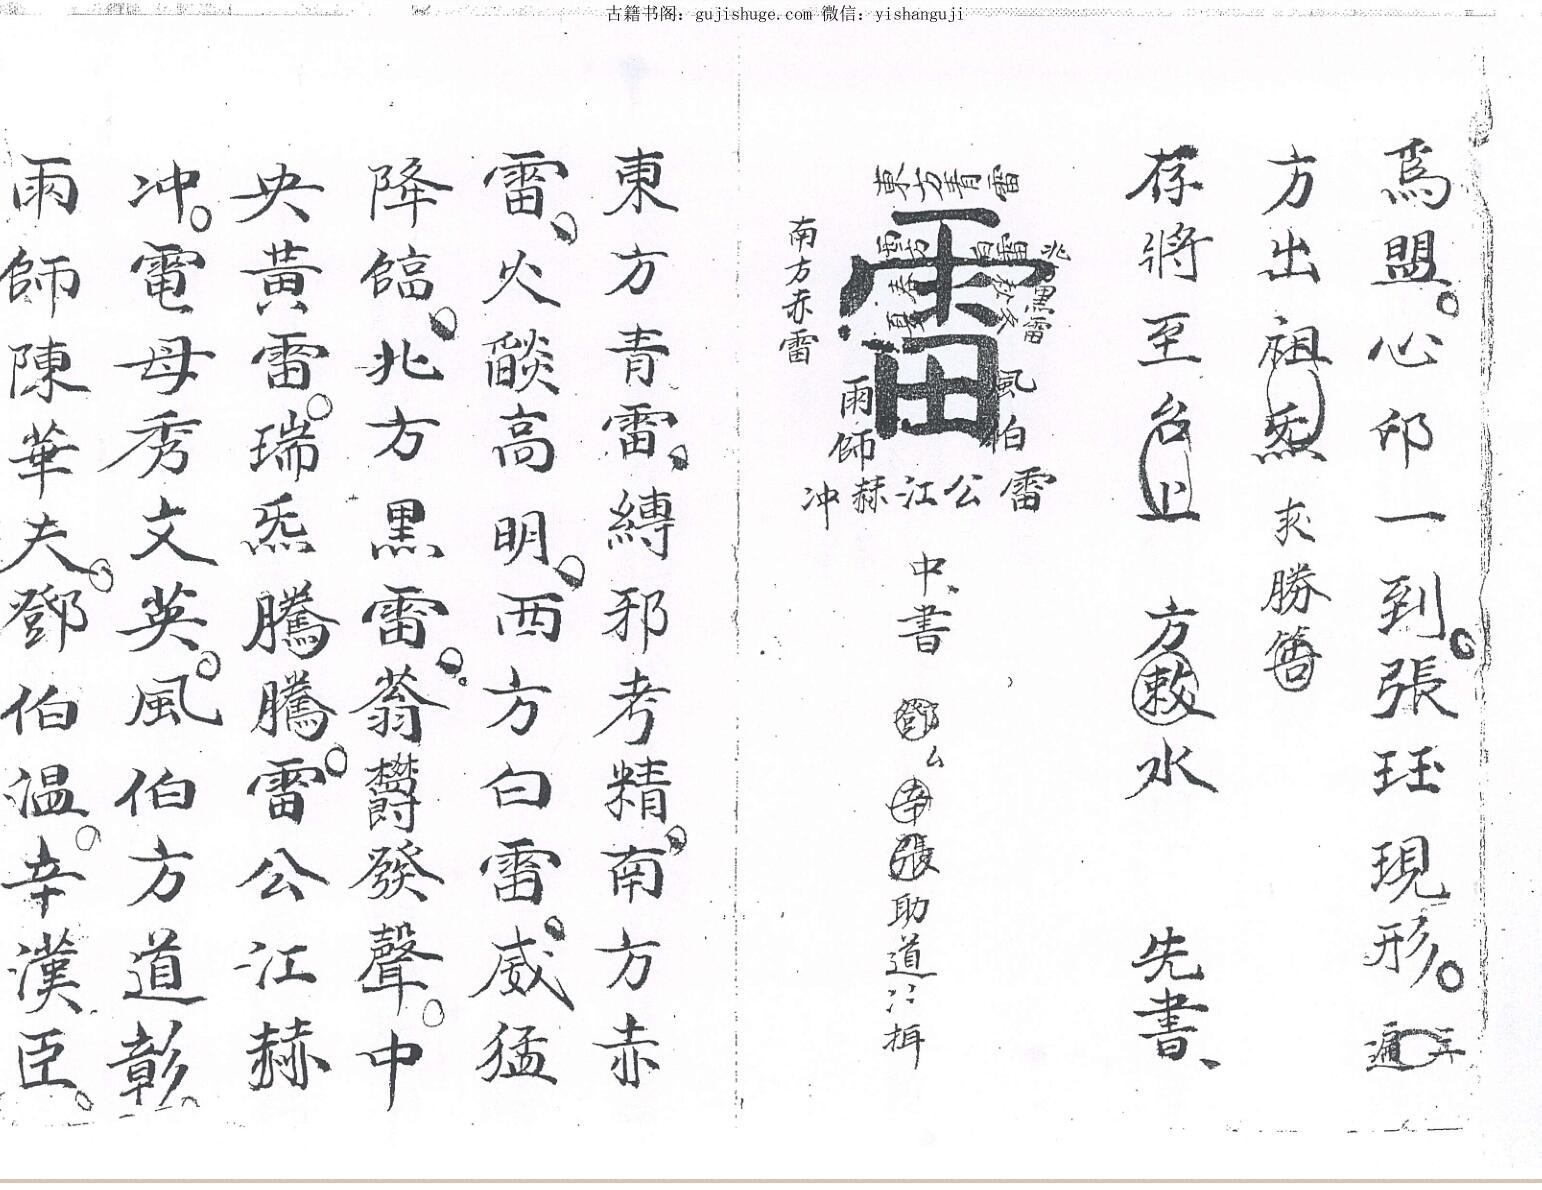 古籍书阁：gujishuge.com 微信：yishanguji
為盟。心印一到。張珏現形。三遍
方出祖炁 求勝簪
存將至名上 方敕水 先書、
雷
東方青雷
南方赤雷
西方白雷
北方黑雷
春夏秋冬
風伯
雨師
雷公江赫冲
中書 鄧厶辛張助道
東方青雷。縛邪考精。南方赤
雷。火燄高明。西方白雷。威猛
降臨。北方黑雷。蓊欝發聲。中
央黃雷。瑞炁騰騰。雷公江赫
冲。電母秀文英。風伯方道彰
雨師陳華夫。鄧伯溫。辛漢臣。